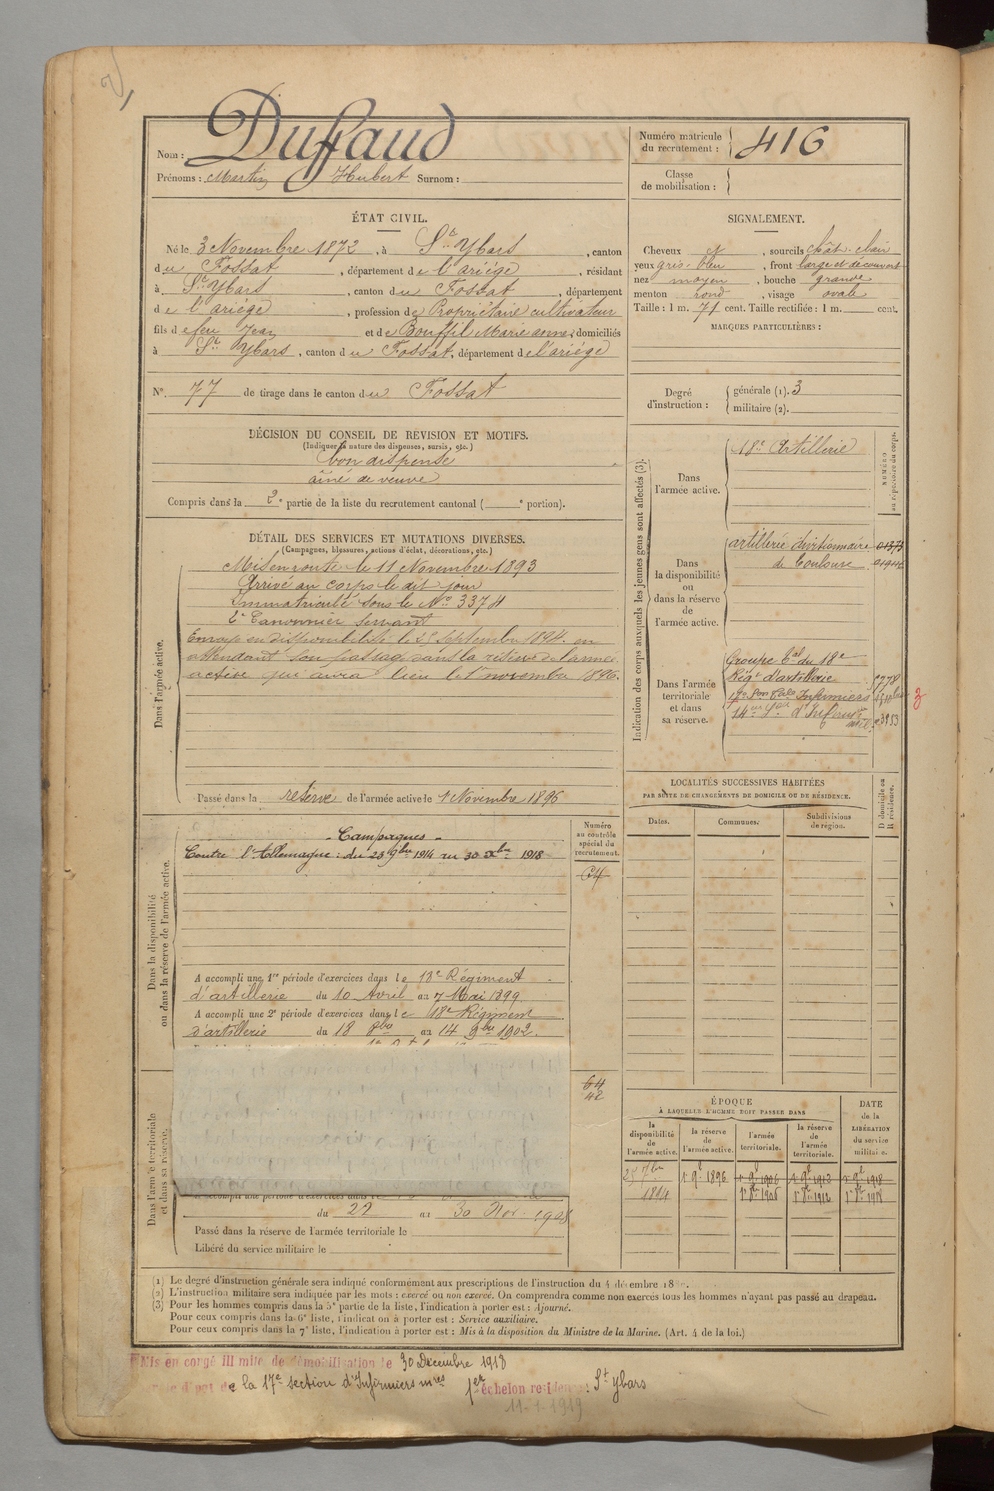 Nom : Duffaud
Prénoms : Martin Hubert Surnom :
Numéro matricule du recrutement : 416
Classe de mobilisation :
ÉTAT CIVIL.
Né le 3 Novembre 1872, à St Ybars, canton
du Fossat, département de l'ariége, résidant
à St Ybars, canton du Fossat, département
de l'ariége, profession de Propriétaire cultivateur
fils de feu Jean et de Bouffil Marie anne, domiciliés
à St Ybars, canton du Fossat, département de l'ariége
No. 77 de tirage dans le canton du Fossat
SIGNALEMENT.
Cheveux et, sourcils chât. clair
yeux gris-bleu, front large et découvert
nez moyen, bouche grande
menton rond, visage ovale
Taille : 1 m. 71 cent. Taille rectifiée : 1 m. cent.
MARQUES PARTICULIÈRES :
Degré d'instruction : générale (1). 3
militaire (2).
DÉCISION DU CONSEIL DE RÉVISION ET MOTIFS.
(Indiquer la nature des dispenses, sursis, etc.)
bon dispensé
aîné de veuve
Compris dans la 2e partie de la liste du recrutement cantonal ( e portion).
DÉTAIL DES SERVICES ET MUTATIONS DIVERSES.
(Campagnes, blessures, actions d'éclat, décorations, etc.)
Dans l'armée active.
Mis en route le 11 Novembre 1893
Arrivé au corps le dit jour
Immatriculé sous le No 3374
2e Canonnier servant
Envoyé en disponibilité le 25 Septembre 1894 en
attendant son passage dans la réserve de l'armée
active qui aura lieu le 1er novembre 1896.
Passé dans la réserve de l'armée active le 1 Novembre 1896
Indication des corps auxquels les jeunes gens sont affectés (3).
NUMÉRO au répertoire du corps.
Dans l'armée active.
18e Artillerie
Dans la disponibilité ou dans la réserve de l'armée active.
artillerie divisionnaire 01373
de Toulouse
Dans l'armée territoriale et dans sa réserve.
Groupe tal du 18e
Régt d'artillerie
17e Son tale Infirmiers
3
LOCALITÉS SUCCESSIVES HABITÉES
PAR SUITE DE CHANGEMENTS DE DOMICILE OU DE RÉSIDENCE.
D domicile ou R résidence.
Dates.
Communes.
Subdivisions de région.
Dans la disponibilité ou dans la réserve de l'armée active.
Numéro au contrôle spécial du recrutement.
64
- Campagnes -
Contre l'Allemagne : du 23 9bre 1914 au 30 Xbre 1918
A accompli une 1re période d'exercices dans le 18e Régiment
d'artillerie du 10 Avril au 7 Mai 1899.
A accompli une 2e période d'exercices dans le 18e Régiment
d'artillerie du 18 8bre au 14 9bre 1902.
Dans l'armée territoriale et dans sa réserve.
64
42
A accompli une période d'exercices dans le
du 22 au 30 Nov. 1908
Passé dans la réserve de l'armée territoriale le
Libéré du service militaire le
ÉPOQUE
À LAQUELLE L'HOMME DOIT PASSER DANS
DATE de la LIBÉRATION du service militaire.
la disponibilité de l'armée active.
la réserve de l'armée active.
l'armée territoriale.
la réserve de l'armée territoriale.
25 7bre 1894
1er 9e 1896
(1) Le degré d'instruction générale sera indiqué conformément aux prescriptions de l'instruction du 4 décembre 18
(2) L'instruction militaire sera indiquée par les mots : exercé ou non exercé. On comprendra comme non exercés tous les hommes n'ayant pas passé au drapeau.
(3) Pour les hommes compris dans la 5e partie de la liste, l'indication à porter est : Ajourné.
Pour ceux compris dans la 6e liste, l'indication à porter est : Service auxiliaire.
Pour ceux compris dans la 7e liste, l'indication à porter est : Mis à la disposition du Ministre de la Marine. (Art. 4 de la loi.)
Mis en congé illimité de démobilisation le 30 Décembre 1918
de la 17e section d'Infirmiers mres 1er échelon résidence : St Ybars
11-1-1919